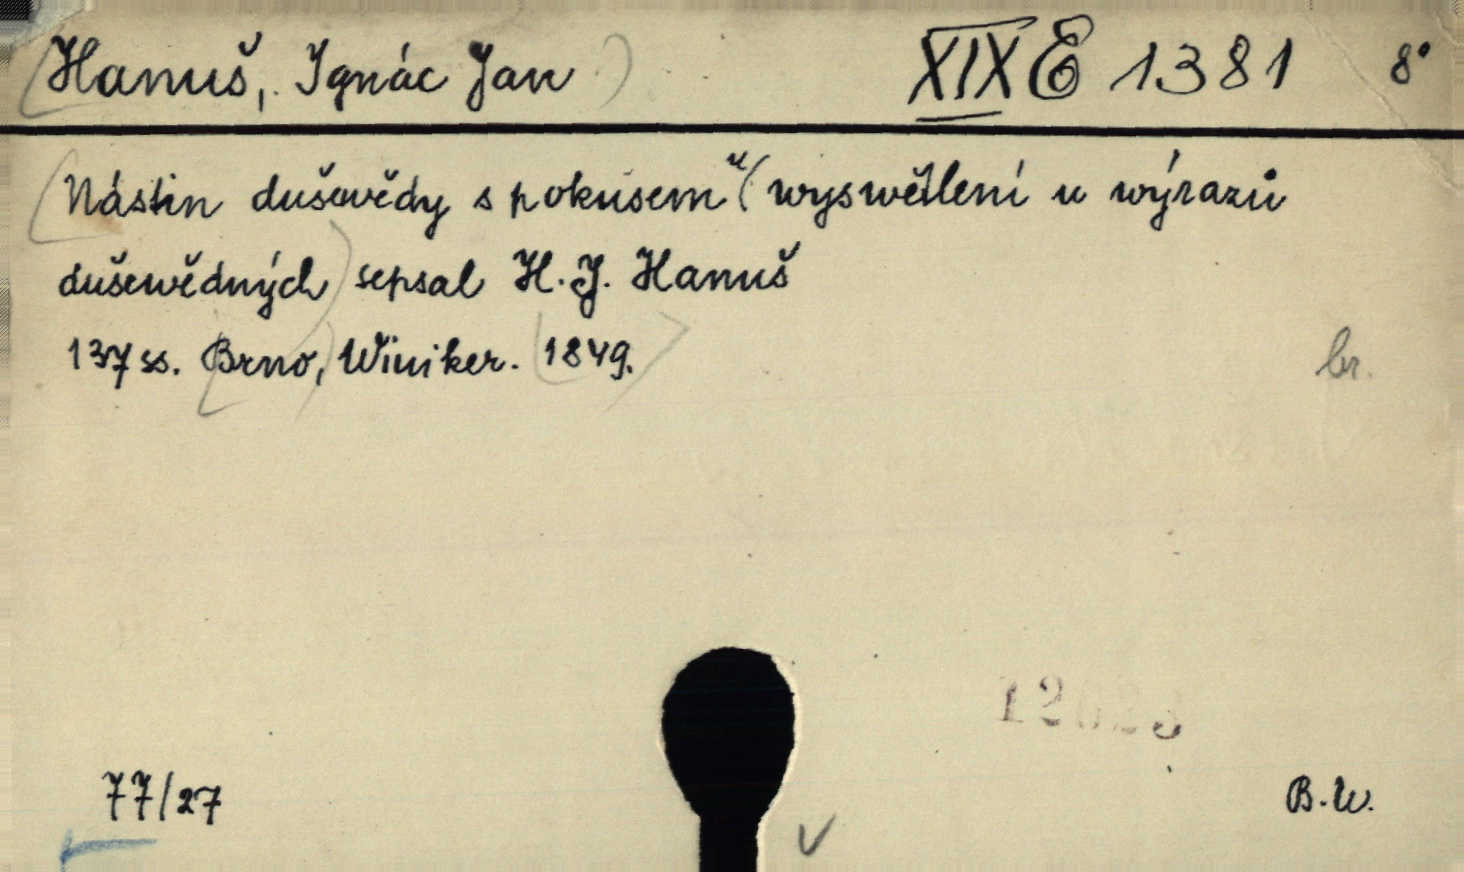 Hanuš, Ignác Jan XIX E 1381 8°
Nástin dušewědy s pokusem u wyswětlení u wýrazů
dušewědných sepsal H. J. Hanuš
137 ss. Brno, Winiker. 1849.
br.
77/27
B. W.